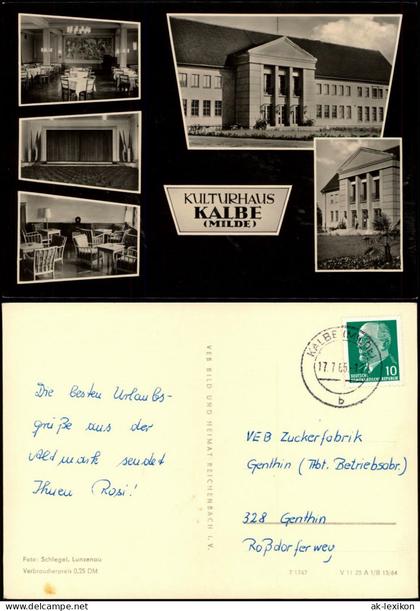 KULTURHAUS
KALBE
(MILDE)
VEB BILD UND HEIMAT REICHENBACH I. V.
KALBE (MILDE)
17.7.65
b
10
DEUTSCHE
DEMOKRATISCHE REPUBLIK
Die besten Urlaubs-
grüße aus der
Altmark sendet
Ihnen Rosi!
VEB Zuckerfabrik
Genthin (Abt. Betriebsabr.)
328 Genthin
Roßdorferweg
Foto: Schlegel, Lunzenau
Verbraucherpreis 0,25 DM
V 11 25 A 1/B 15/64
ak-lexikon.com